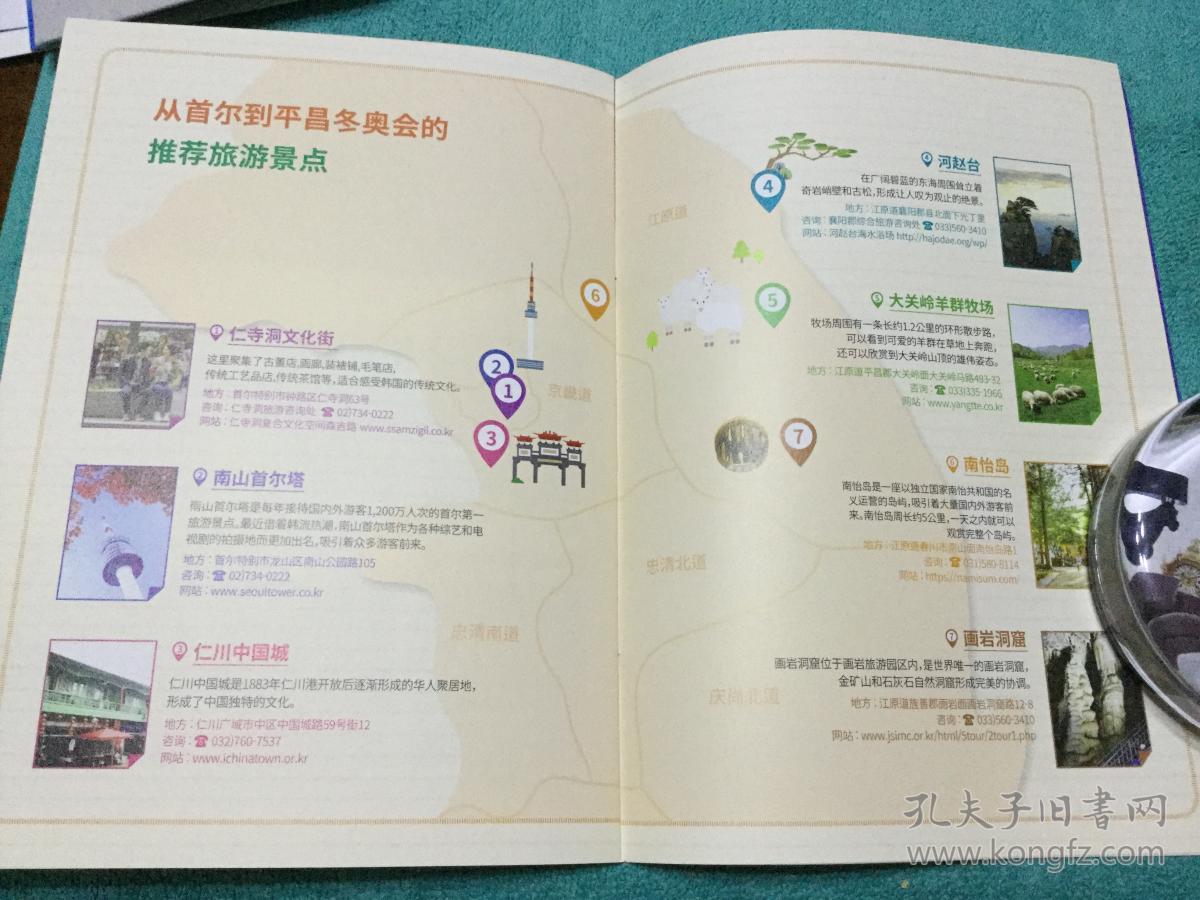 从首尔到平昌冬奥会的
推荐旅游景点
1 仁寺洞文化街
这里聚集了古董店,画廊,装裱铺,毛笔店,
传统工艺品店,传统茶馆等,适合感受韩国的传统文化。
地方:首尔特别市钟路区仁寺洞63号
咨询:仁寺洞旅游咨询处 ☎ 02)734-0222
网站:仁寺洞复合文化空间森吉路 www.ssamzigil.co.kr
2 南山首尔塔
南山首尔塔是每年接待国内外游客1,200万人次的首尔第一
旅游景点。最近借着韩流热潮,南山首尔塔作为各种综艺和电
视剧的拍摄地而更加出名,吸引着众多游客前来。
地方:首尔特别市龙山区南山公园路105
咨询:☎ 02)734-0222
网站:www.seoultower.co.kr
3 仁川中国城
仁川中国城是1883年仁川港开放后逐渐形成的华人聚居地,
形成了中国独特的文化。
地方:仁川广域市中区中国城路59号街12
咨询:☎ 032)760-7537
网站:www.ichinatown.or.kr
6
2
1
京畿道
3
忠清南道
江原道
4
5
7
忠清北道
庆尚北道
4 河赵台
在广阔碧蓝的东海周围耸立着
奇岩峭壁和古松,形成让人叹为观止的绝景。
地方:江原道襄阳郡县北面下光丁里
咨询:襄阳郡综合旅游咨询处 ☎ 033)560-3410
网站:河赵台海水浴场 http://hajodae.org/wp/
5 大关岭羊群牧场
牧场周围有一条长约1.2公里的环形散步路,
可以看到可爱的羊群在草地上奔跑,
还可以欣赏到大关岭山顶的雄伟姿态。
地方:江原道平昌郡大关岭面大关岭马路483-32
咨询:☎ 033)335-1966
网站:www.yangtte.co.kr
6 南怡岛
南怡岛是一座以独立国家南怡共和国的名
义运营的岛屿,吸引着大量国内外游客前
来。南怡岛周长约5公里,一天之内就可以
观赏完整个岛屿。
地方:江原道春川市南山面南怡岛路1
咨询:☎ 031)580-8114
网站:https://namisum.com/
7 画岩洞窟
画岩洞窟位于画岩旅游园区内,是世界唯一的画岩洞窟,
金矿山和石灰石自然洞窟形成完美的协调。
地方:江原道旌善郡画岩面画岩洞窟路12-8
咨询:☎ 033)560-3410
网站:www.jsimc.or.kr/html/5tour/2tour1.php
孔夫子旧書网
www.kongfz.com